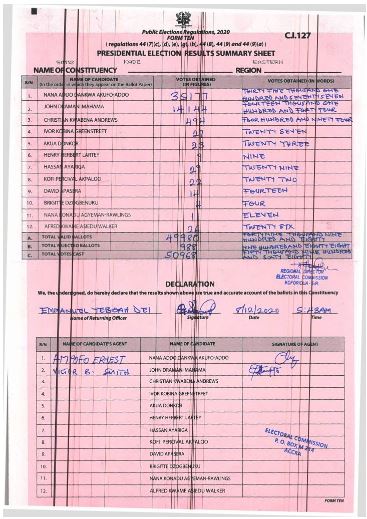 Public Elections Regulations, 2020
FORM TEN
C.I.127
PRESIDENTIAL ELECTION RESULTS SUMMARY SHEET
EASTERN
NAME OF CONSTITUENCY REGION
S/N NAME OF CANDIDATE VOTES OBTAINED VOTES OBTAINED (IN WORDS)
(In the order in which they appear on the Ballot Paper) (IN FIGURES)
1. NANA ADDO DANKWA AKUFO-ADDO 35177 THIRTY FIVE THOUSAND ONE
HUNDRED AND SEVENTY SEVEN
2. JOHN DRAMANI MAHAMA 14144 FOURTEEN THOUSAND ONE
HUNDRED AND FORTY FOUR
3. CHRISTIAN KWABENA ANDREWS 494 FOUR HUNDRED AND NINETY FOUR
4. IVOR KOBINA GREENSTREET 27 TWENTY SEVEN
5. AKUA DONKOR 23 TWENTY THREE
6. HENRY HERBERT LARTEY 9 NINE
7. HASSAN AYARIGA 29 TWENTY NINE
8. KOFI PERCIVAL AKPALOO 22 TWENTY TWO
9. DAVID APASERA 14 FOURTEEN
10. BRIGITTE DZOGBENUKU 4 FOUR
11. NANA KONADU AGYEMAN-RAWLINGS 11 ELEVEN
12. ALFRED KWAME ASIEDU WALKER 26 TWENTY SIX
A. TOTAL VALID BALLOTS 49980 FORTY NINE THOUSAND NINE
HUNDRED AND EIGHTY
B. TOTAL REJECTED BALLOTS 988 NINE HUNDRED AND EIGHTY EIGHT
C. TOTAL VOTES CAST 50968 FIFTY THOUSAND NINE HUNDRED
AND SIXTY EIGHT
REGIONAL DIRECTOR
ELECTORAL COMMISSION
KOFORIDUA - E/R
DECLARATION
We, the undersigned, do hereby declare that the results shown above are true and accurate account of the ballots in this Constituency
EMMANUEL YEBOAH DEI 8/12/2020 5:43AM
Name of Returning Officer Signature Date Time
S/N NAME OF CANDIDATE'S AGENT NAME OF CANDIDATE SIGNATURE OF AGENT
1. AMPOFO ERNEST NANA ADDO DANKWA AKUFO-ADDO
2. VIGOR B. SMITH JOHN DRAMANI MAHAMA
3. CHRISTIAN KWABENA ANDREWS
4. IVOR KOBINA GREENSTREET
5. AKUA DONKOR
6. HENRY HERBERT LARTEY
7. HASSAN AYARIGA
8. KOFI PERCIVAL AKPALOO
9. DAVID APASERA
10. BRIGITTE DZOGBENUKU
11. NANA KONADU AGYEMAN-RAWLINGS
12. ALFRED KWAME ASIEDU WALKER
ELECTORAL COMMISSION
P. O. BOX M 214
ACCRA
FORM TEN